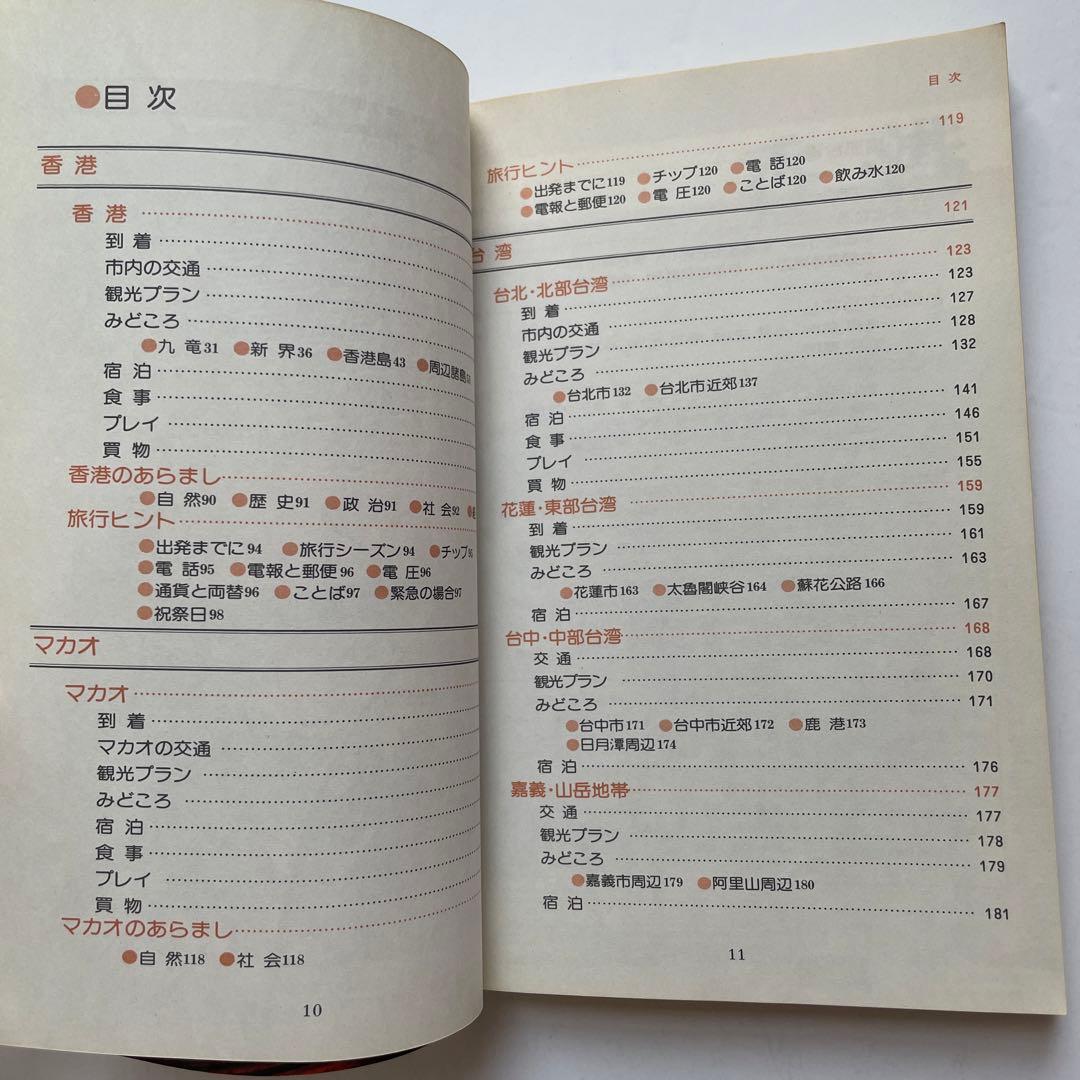 ●目 次
香港
香 港
到 着
市内の交通
観光プラン
みどころ
●九 竜31 ●新 界36 ●香港島43 ●周辺諸島
宿 泊
食 事
プレイ
買 物
香港のあらまし
●自 然90 ●歴 史91 ●政 治91 ●社 会92
旅行ヒント
●出発までに94 ●旅行シーズン94 ●チップ95
●電 話95 ●電報と郵便96 ●電 圧96
●通貨と両替96 ●ことば97 ●緊急の場合97
●祝祭日98
マカオ
マカオ
到 着
マカオの交通
観光プラン
みどころ
宿 泊
食 事
プレイ
買 物
マカオのあらまし
●自 然118 ●社 会118
10
目 次
旅行ヒント 119
●出発までに119 ●チップ120 ●電 話120
●電報と郵便120 ●電 圧120 ●ことば120 ●飲み水120
台 湾 121
台北・北部台湾 123
到 着 123
市内の交通 127
観光プラン 128
みどころ 132
●台北市132 ●台北市近郊137
宿 泊 141
食 事 146
プレイ 151
買 物 155
花蓮・東部台湾 159
到 着 159
観光プラン 161
みどころ 163
●花蓮市163 ●太魯閣峡谷164 ●蘇花公路166
宿 泊 167
台中・中部台湾 168
交 通 168
観光プラン 170
みどころ 171
●台中市171 ●台中市近郊172 ●鹿 港173
●日月潭周辺174
宿 泊 176
嘉義・山岳地帯 177
交 通 177
観光プラン 178
みどころ 179
●嘉義市周辺179 ●阿里山周辺180
宿 泊 181
11